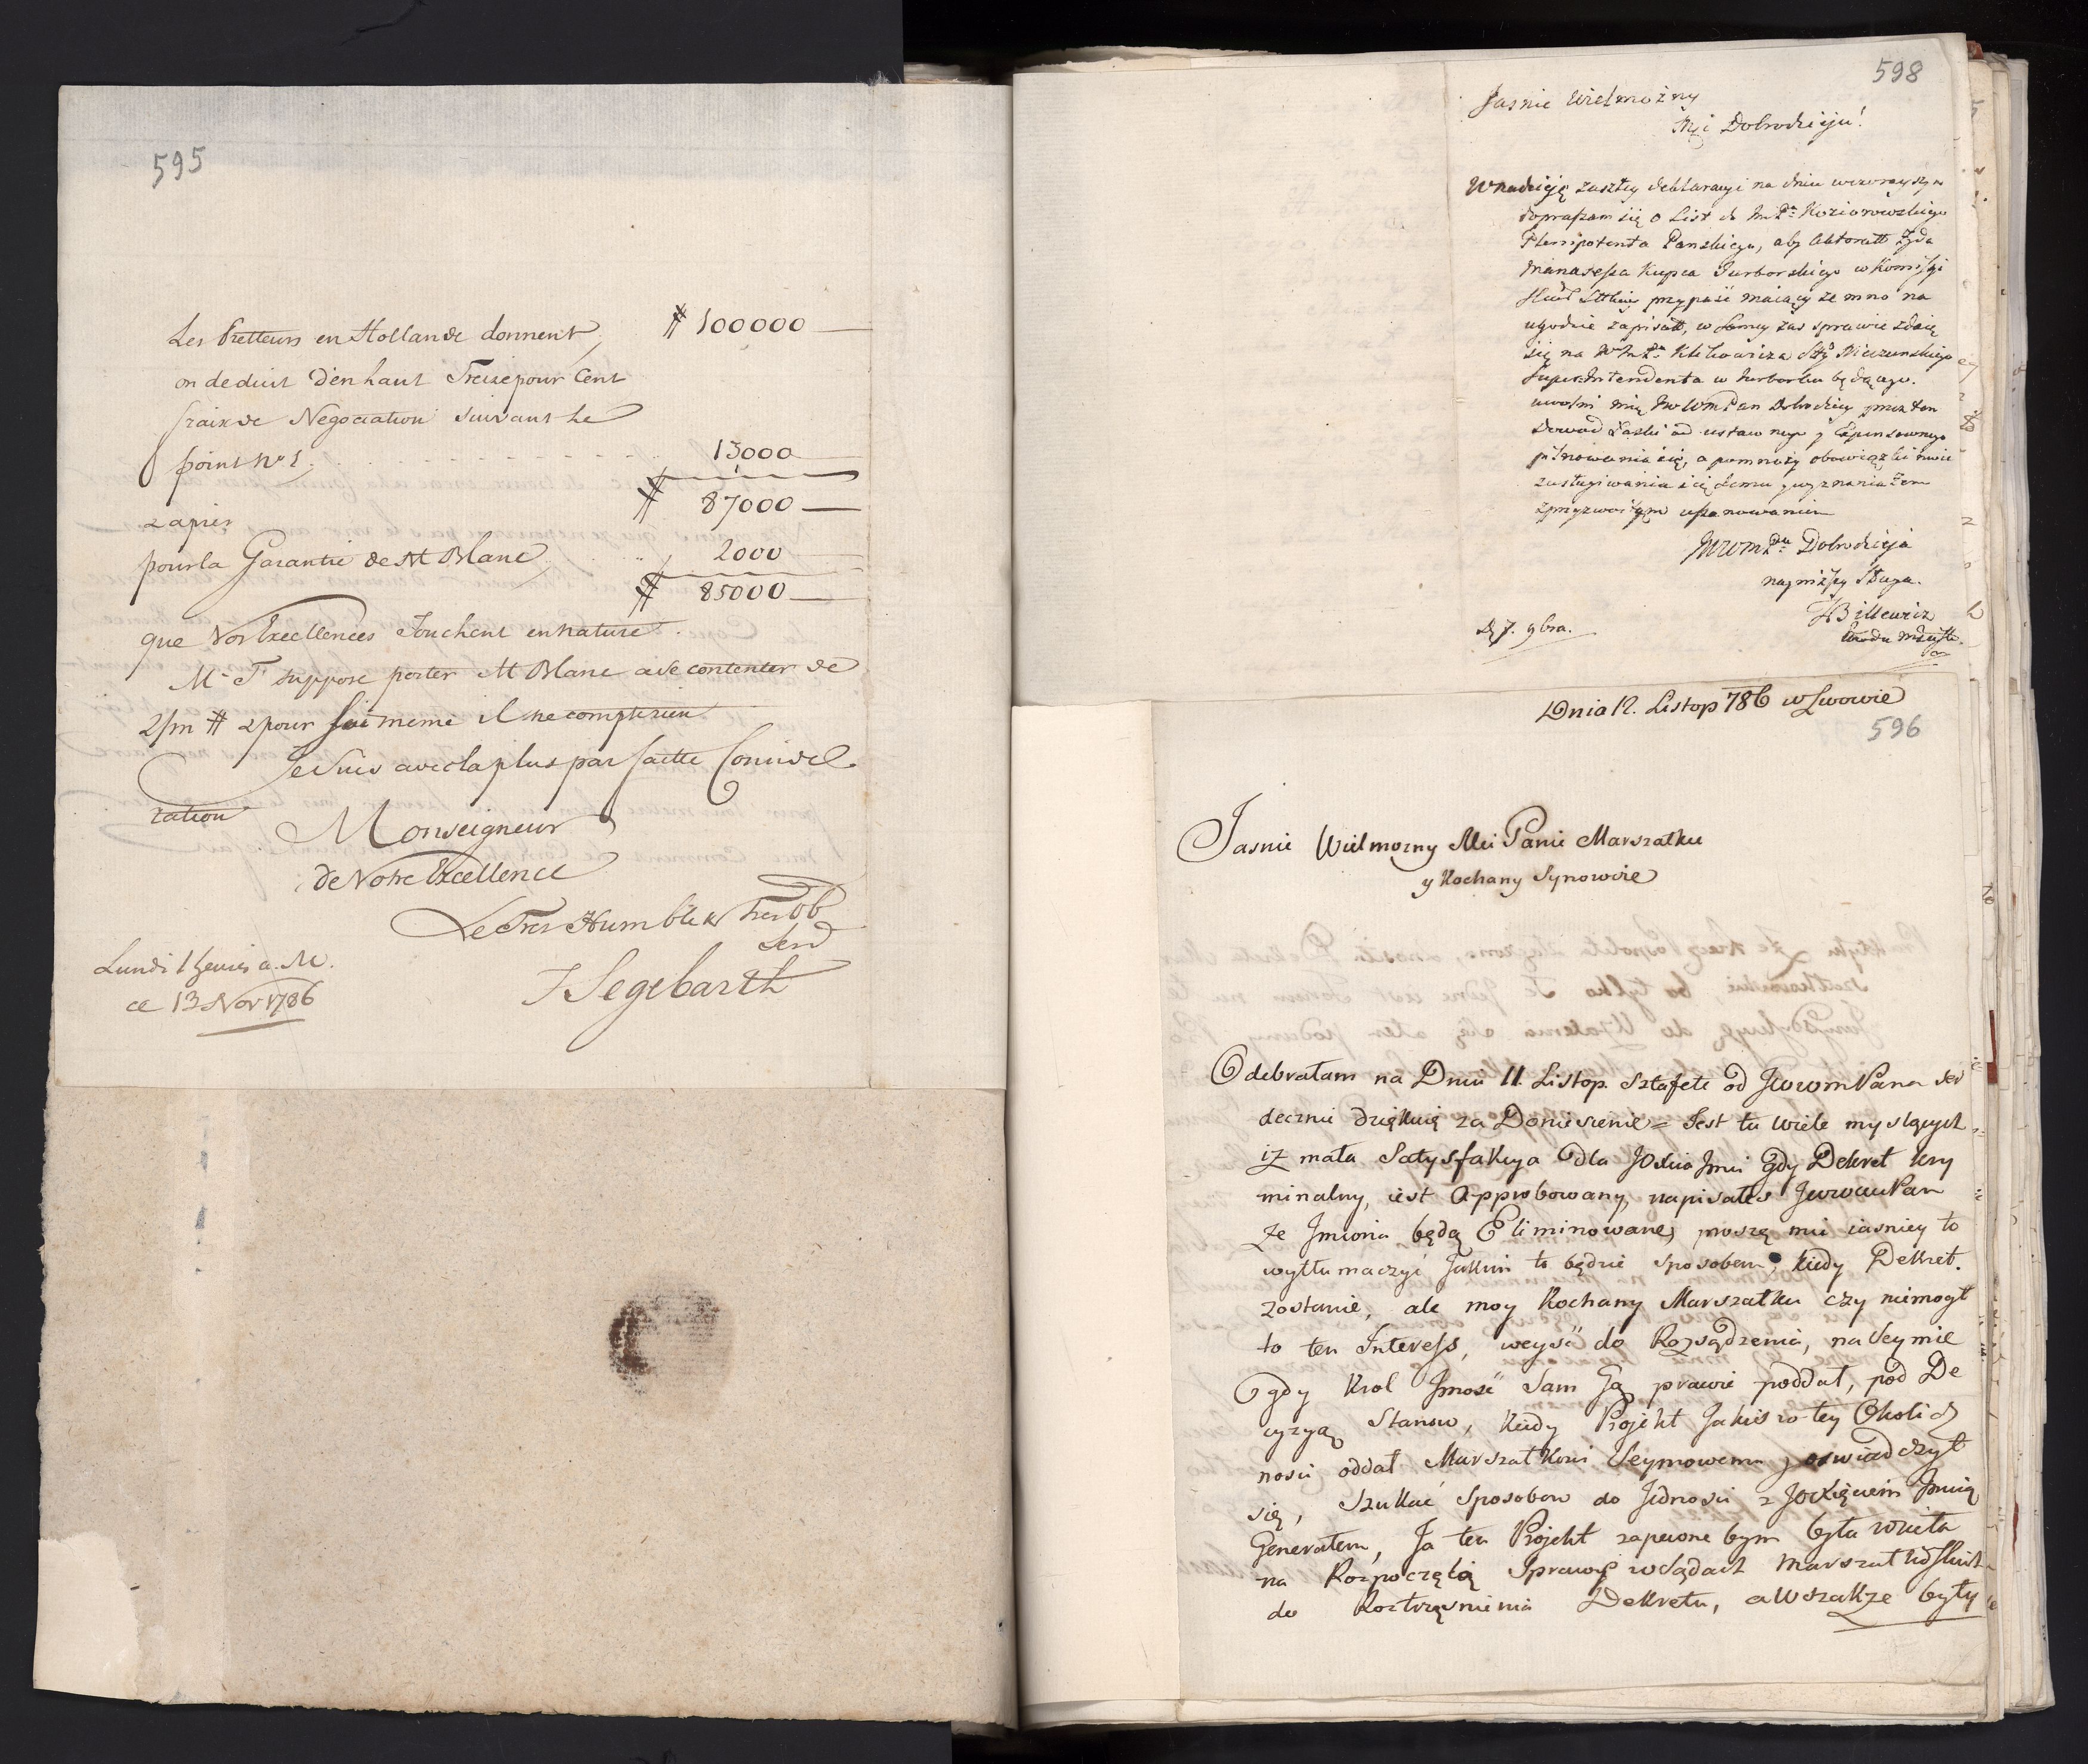 595
Les Pretteurs en Hollande donnent # 100000
on deduit d'en haut Treise pour Cent
fraix de Negociation suivant le
point No 1. 13000
# 87000
2 apres
pour la Garantie de M Blanc 2000
# 85000
que Vos Excellences Touchent en nature.
M. T suppose porter M Blanc a se contenter de
2/m # 2 pour lui meme il ne compte rien
Je suis avec la plus parfaitte Consideration
ration
Monseigneur
de Votre Excellence
Le Tres Humble & Tres Ob
Serv
J Segebarth
Lundi 1 heures a. M.
ce 13 Nov 1786
598
Jasnie Wielmożny
Mći Dobrodzieju!
W nadzieję zaszłey deklaracyi na dniu wczorayszym
dopraszam się o List do Koziorowskiego
Plenipotenta Pańskiego, aby Żyda
Manassesa Kupca Jurborskiego w Komissyi
przypaść maiący ze mno na
ugodnie zapisał, w samey zas sprawie zdaię
się na Klikowicza
Super-Intendenta w Jurborku będącego.
uwolni mię JWWmPan Dobrodziey przez ten
dowod Łaski od ustawnego y Expensownego
pilnowania się, a pomnoży obowiązki moie
zasługiwania się Jemu y wyznania żem
z przyzwoitym uszanowaniem
JWWmPna Dobrodzieja
nayniższy Sługa.
Billewicz
D. 7. 9bra.
Dnia 12. Listop 786 w Lwowie
596
Jasnie Wielmozny Mci Panie Marszałku
y Kochany Synowcze
Odebrałam na Dniu 11. Listop. sztafete od JwwmPana ser
decznie dziękuię za Doniesienie = Jest tu wiele myslących
iż mała Satysfakcya dla JOXcia Jmci gdy Dekret kry
minalny, iest Approbowany, napisałes JwwmPan
że Jmiona będą Eliminowane, proszę mi iasniey to
wytłumaczyć Jakim to będzie sposobem, kiedy Dekret.
zostanie, ale moy Kochany Marszałku czy niemogł
to ten Interess, weyść do Rozsądzenia, na Seymie
gdy Krol Jmość Sam Go prawie poddał, pod De
cyzyą Stanow, kiedy Projekt Jakis w tey Okolicz
nosci oddał Marszałkowi Seymowemu y oswiadczył
się, Szukać Sposobow do Jednosci z JOXięciem Jmcią
Generałem, Ja ten Projekt zapewne bym była wzieła
na Rozpoczętą Sprawę w Sądach Marszałkowskich
do Roztrząsnienia Dekretu, a wszakże były